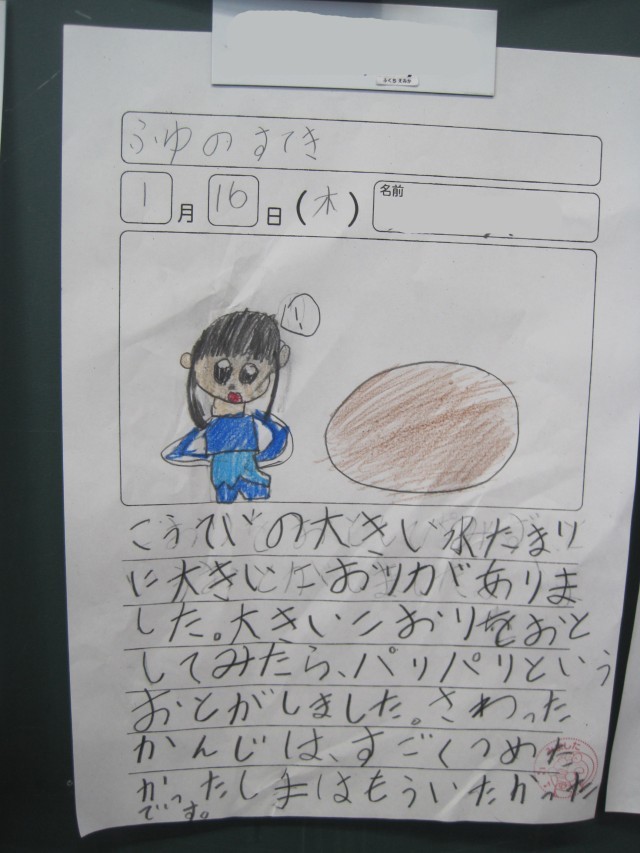 ふゆのすてき
1月16日(木)
名前
こうていの大きい水たまり
に大きいこおりがありま
した。大きいこおりをおと
してみたら、パリパリという
おとがしました。さわった
かんじは、すごくつめた
かったし手はもういたかった
です。